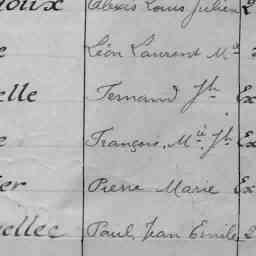 Alexis Louis Julien
Léon Laurent Mie
elle Fernand Jh Ex
François, Mie Jh Ex
er Pierre Marie Ex
ellec Paul Jean Emile